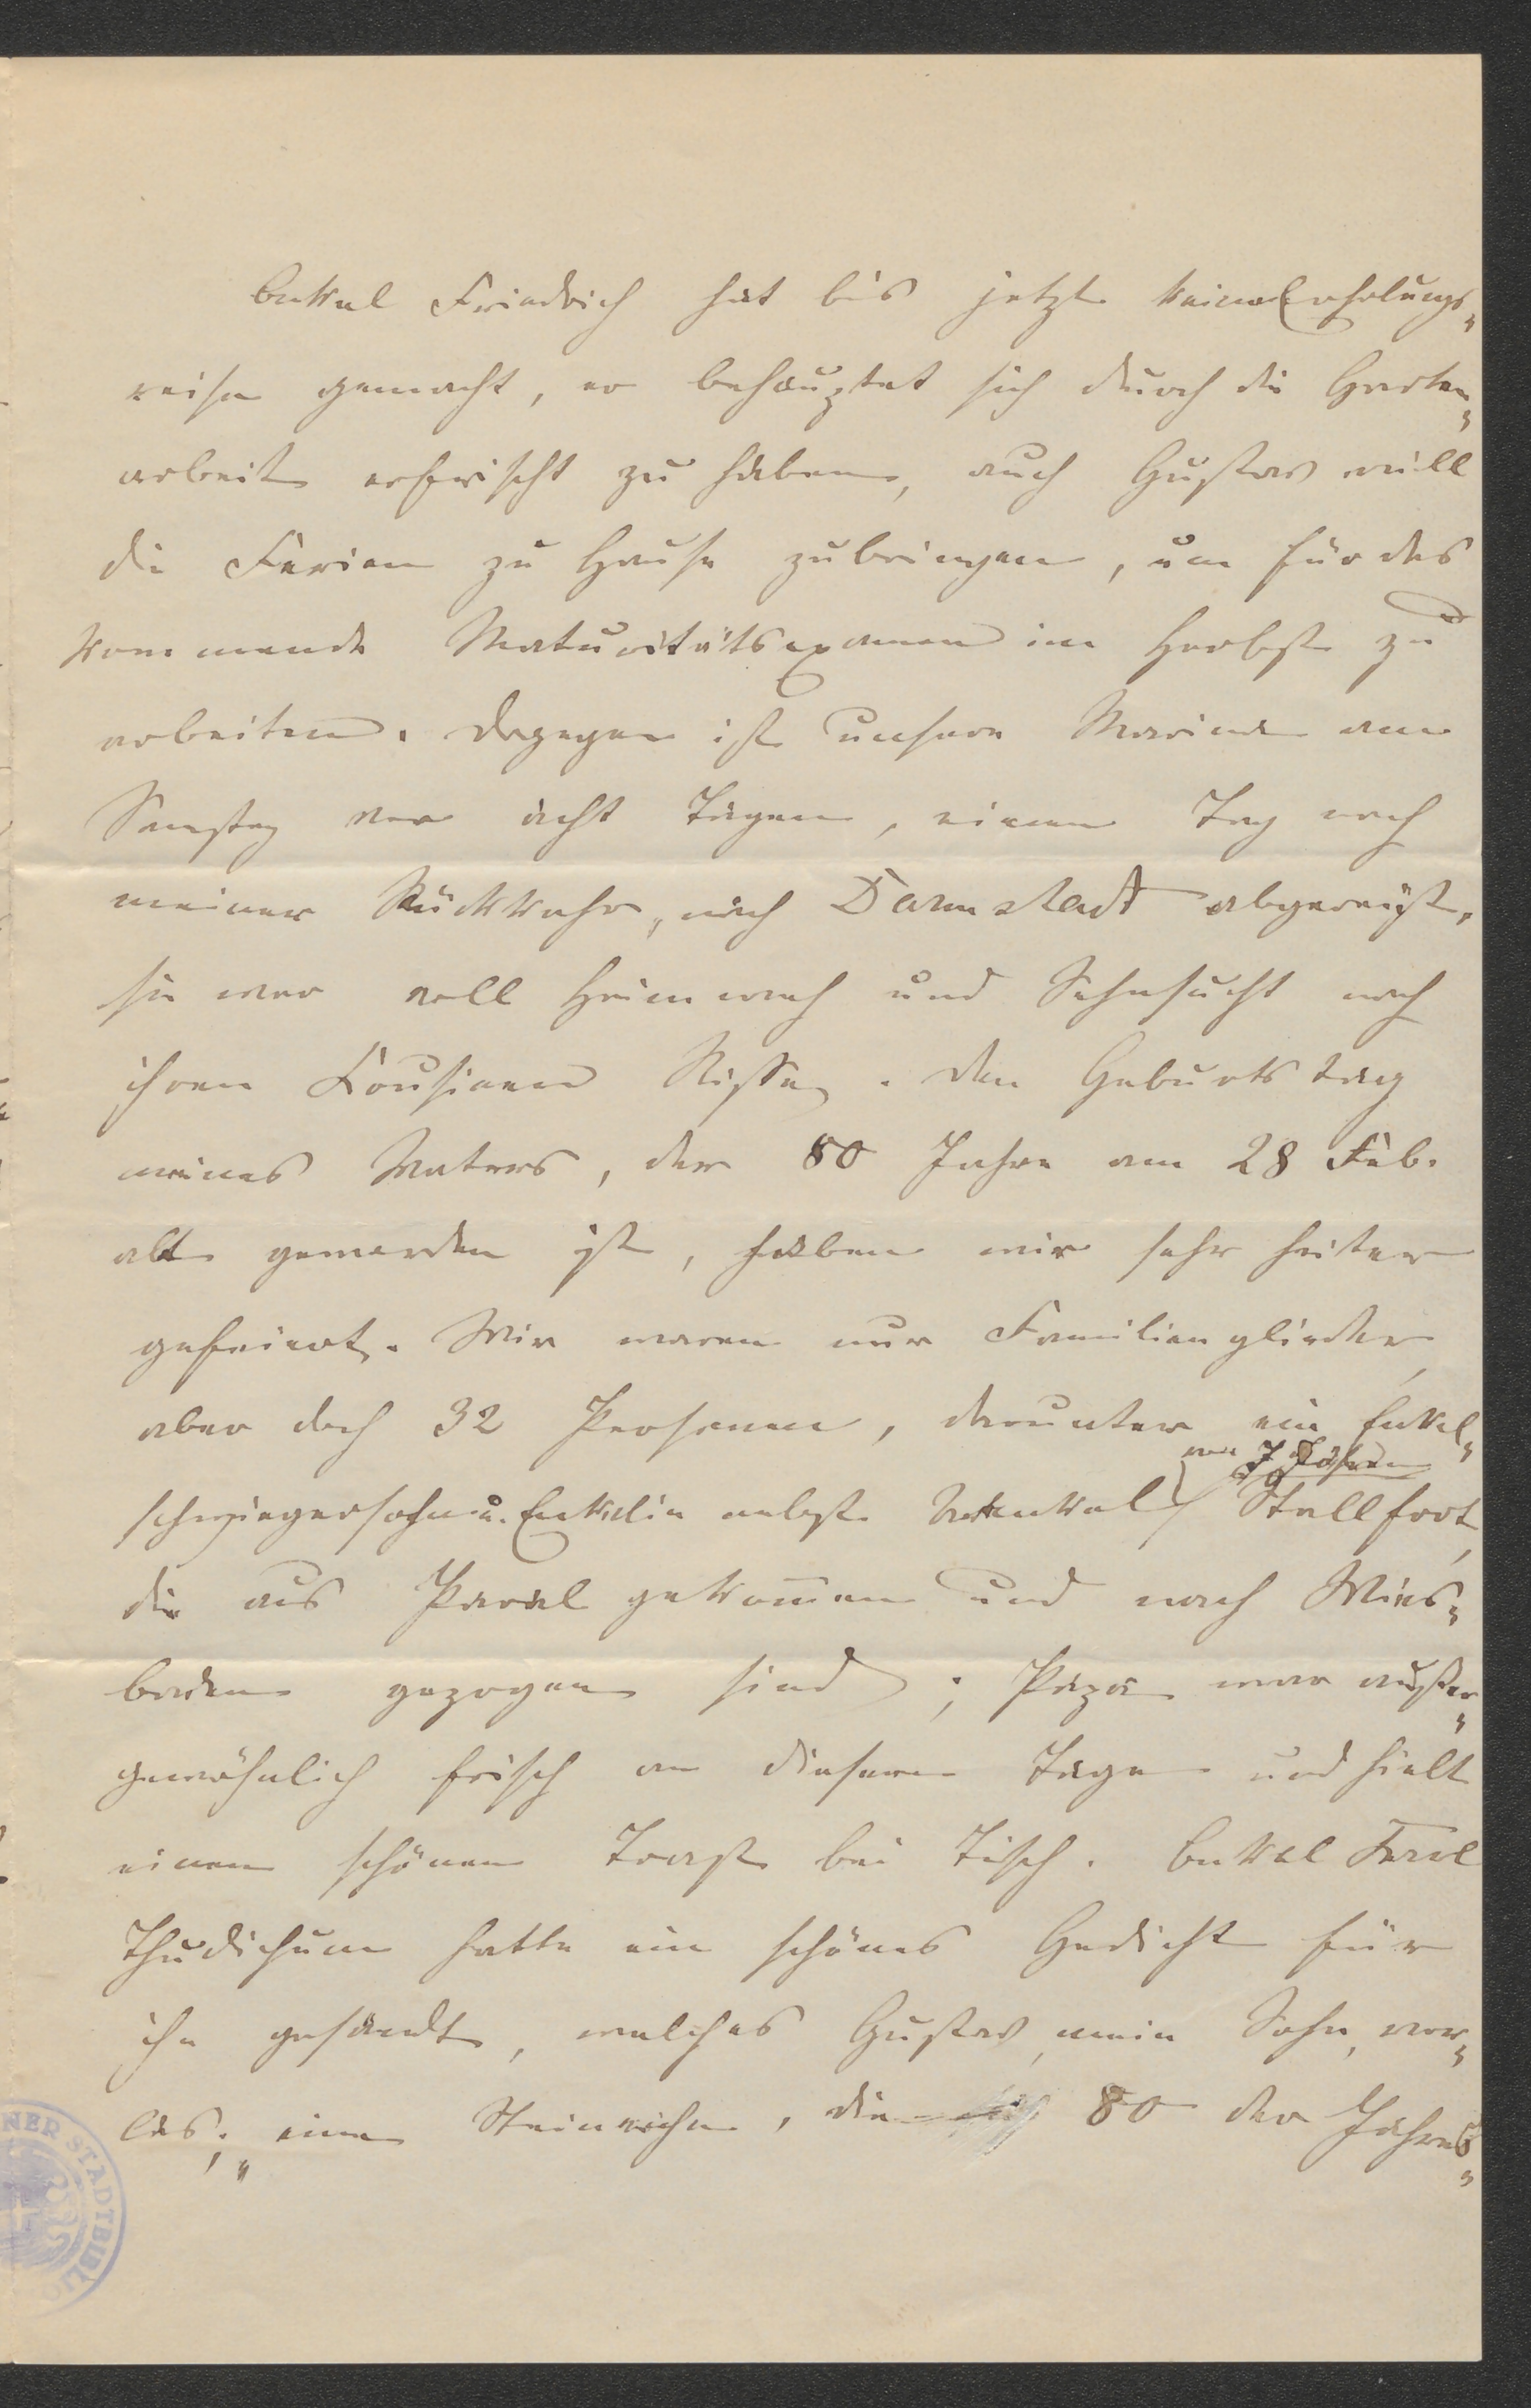 Onkel Friedrich hat bis jetzt keine Erholungs-
reise gemacht, er behauptet sich durch die Garten-
arbeit erfrischt zu haben, auch Gustav will
die Ferien zu Hause zubringen, um für das
kommende Maturitätsexamen im Herbst zu
arbeiten. Dagegen ist unsere Marie am
Samstag vor acht Tagen, einen Tag nach
meiner Rückkehr, nach Darmstadt abgereist,
sie war voll Heimweh und Sehnsucht nach
ihren Cousinen. Den Geburtstag
meines Vaters, der 80 Jahre am 28 Feb.
alt geworden ist, haben wir sehr heiter
gefeiert. Wir waren nur Familienglieder,
aber doch 32 Personen, darunter ein Enkel-
von 7 Jahren
schwiegersohn u. Enkelin nebst Urenkel Stallfort,
die aus Parral gekom̅en und nach Wies-
baden gezogen sind; Papa war außer-
gewöhnlich frisch an diesem Tage und hielt
einen schönen Toast bei Tisch. Onkel Karl
Thudichum hatte ein schönes Gedicht für
ihn gesandt, welches Gustav, mein Sohn, vor-
las; „eine Steineiche, die 80 der Jahres-
NER STADTBIBL